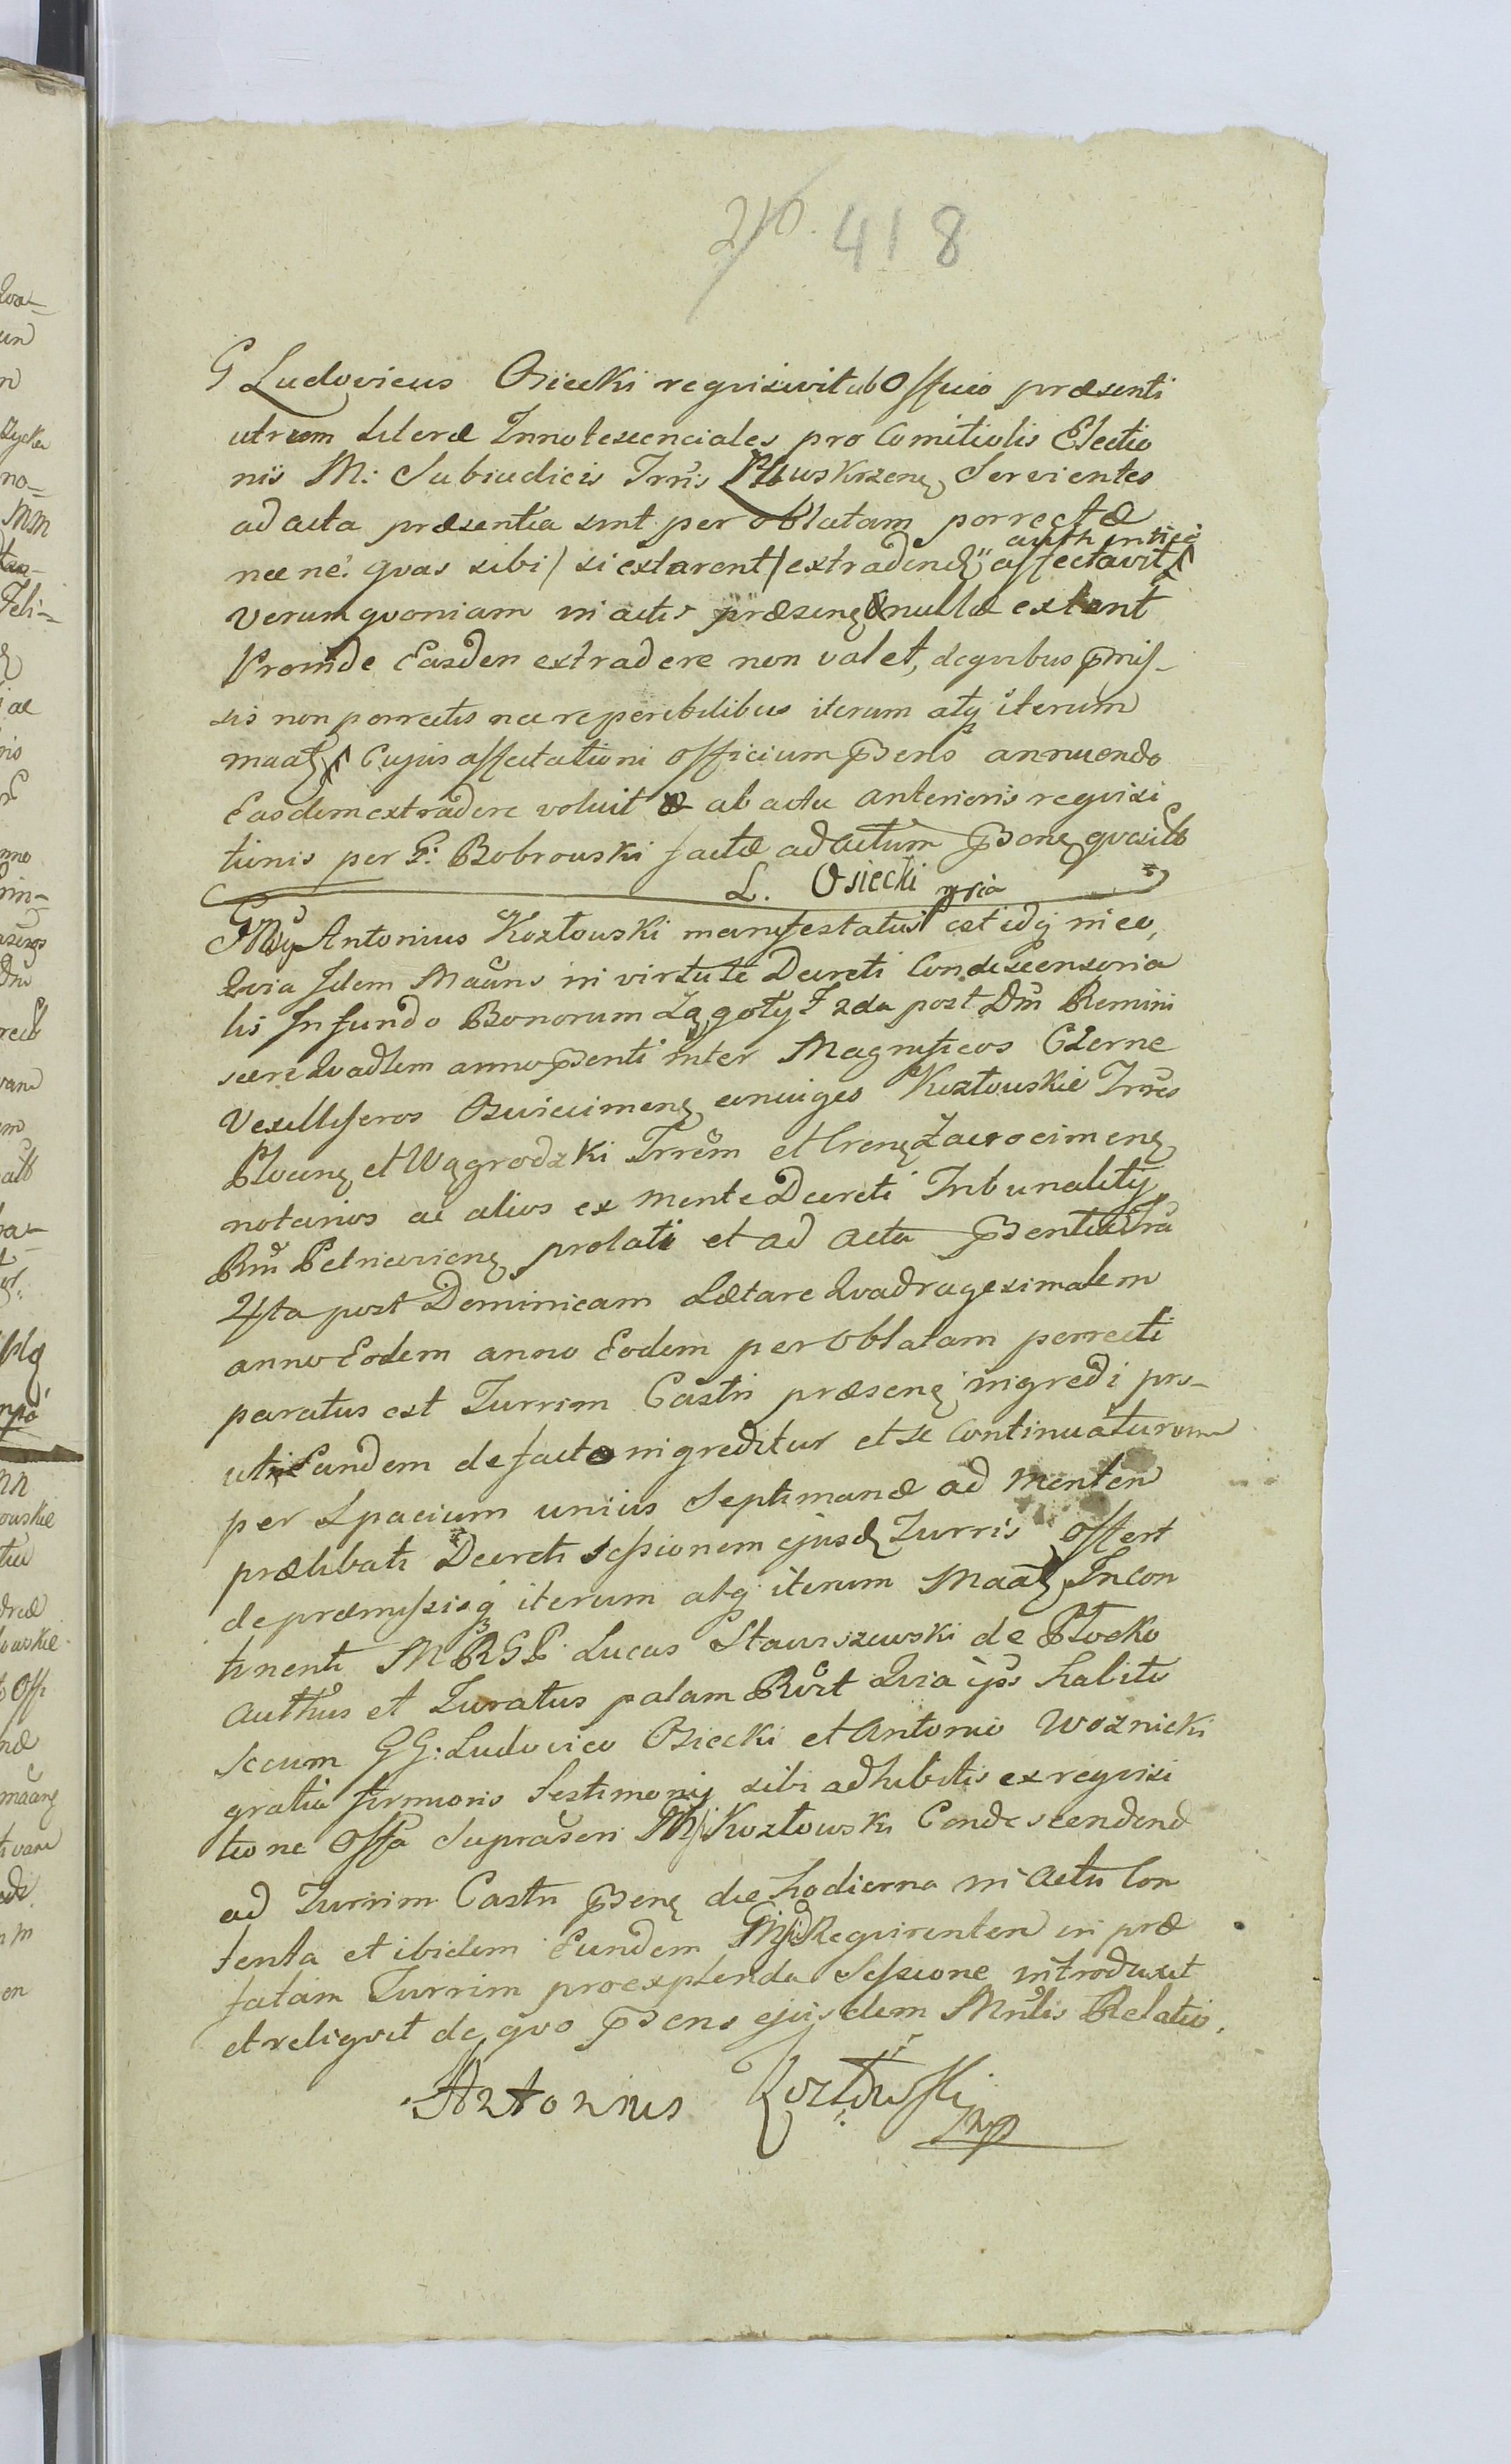 210. 418
G Ludovicus Osiecki requisivit ab Officio præsenti
utrum Literæ Innotescenciales pro Comitiolis Electio
nis M: Subiudicis Trris Wyszken Servientes
ad acta præsentia sint per oblatam porrectæ
authentice
nec ne: quas sibi / si extarent / extradend affectavit
Verum quoniam in actis præsen nullæ extant
Proinde Easdem extradere non valet, de quibus pmis-
sis non porrectis nec reperibilibus iterum atq iterum
maat Cujus affectationi Officium psens annuendo
Easdem extradere voluit & ab actu anterioris requisi
tionis per G: Bobrowski factæ ad actum psens
L. Osiecki mpria
Antonius Kozłowski manifestatus est idq in eo,
Quia Idem Maans in virtute Decreti Condescensoria
lis In fundo Bonorum Zągoty F 2da post Dm Remini
scere Quadlem anno psenti inter Magnificos Czerne
Vexilliferos Oswiecimen coniuges Kozłowskie Trres
Plocen et Wągrodzki Trrem et Cren Zacrocimen
notarios ac alios ex mente Decreti Tribunality
Rni Petricovien prolati et ad acta psentia fria
4ta post Dominicam Lætare Quadragesimalem
anno Eodem anno Eodem per Oblatam porrecti
paratus est Turrim Castri præsen ingredi pro-
utq Eandem de facto ingreditur et se Continuaturum
per Spacium unius Septimanæ ad mentem
prælibati Decreti sessionem ejusd Turris offert
de præmissisq iterum atq iterum Maat Incon
tinenti MRGP. Lucas Stawiszewski de Płocko
Authus et Juratus palam Rcvit Quia ips habitis
secum GG: Ludovico Osiecki et Antonio Woznicki
gratia firmioris testimonij sibi adhibitis ex requisi
tione Offa Suprascri Kozłowski Condescendend
ad Turrim Castri psen die hodierna in Actu Con
tenta et ibidem Eundem Requirentem in præ
fatam Turrim pro explenda Sessione introduxit
et reliquit de quo psens ejusdem Mnlis Relatio.
Antonius Kozłowski
mp